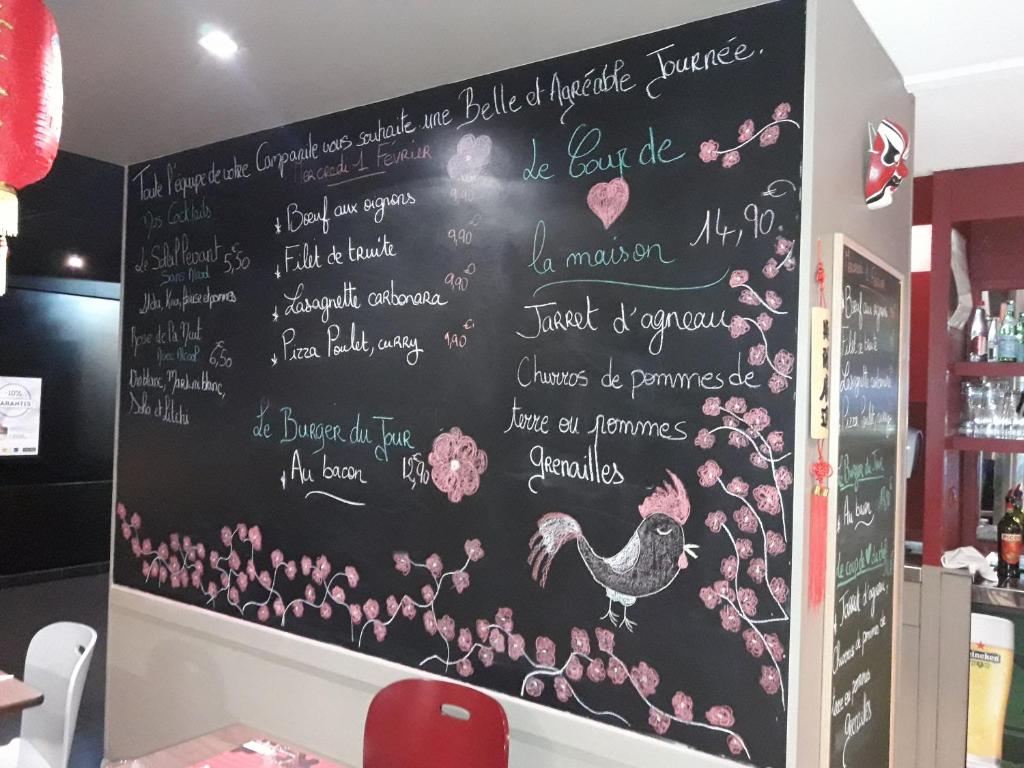 Toute l'équipe de votre Campanile vous souhaite une Belle et Agréable Journée.
Mercredi 1 Février
Nos Cocktails
Le Soleil Levant
Sans Alcool
5,50
et pommes
de la Nuit
Avec Alcool
6,50
Gin blanc, Martini blanc,
Soho et Litchi
Boeuf aux oignons
9,90
Filet de truite
9,90
Lasagnette carbonara
9,90
Pizza Poulet, curry
9,90
Le Burger du Jour
Au bacon 12,90
Le Coup de
la maison
14,90€
Jarret d'agneau
Churros de pommes de
terre ou pommes
grenailles
10%
Boeuf aux oignons
Filet de truite
Lasagnette carbonara
Pizza Poulet curry
Le Burger du Jour
Au bacon
Le coup de
Jarret d'agneau,
Churros de pommes de
terre ou pommes
Grenailles
Heineken